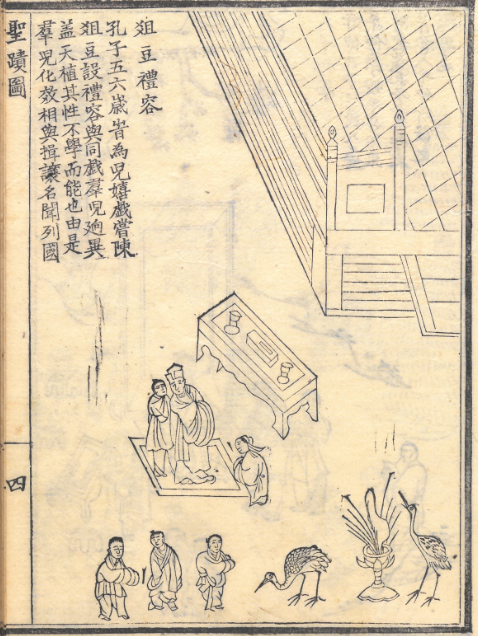 俎豆禮容
孔子五六歲旹為兒嬉戲嘗陳
俎豆設禮容與同戲羣兒逈異
盖天植其性不學而能也由是
羣兒化效相與揖讓名聞列國
聖蹟圖
四